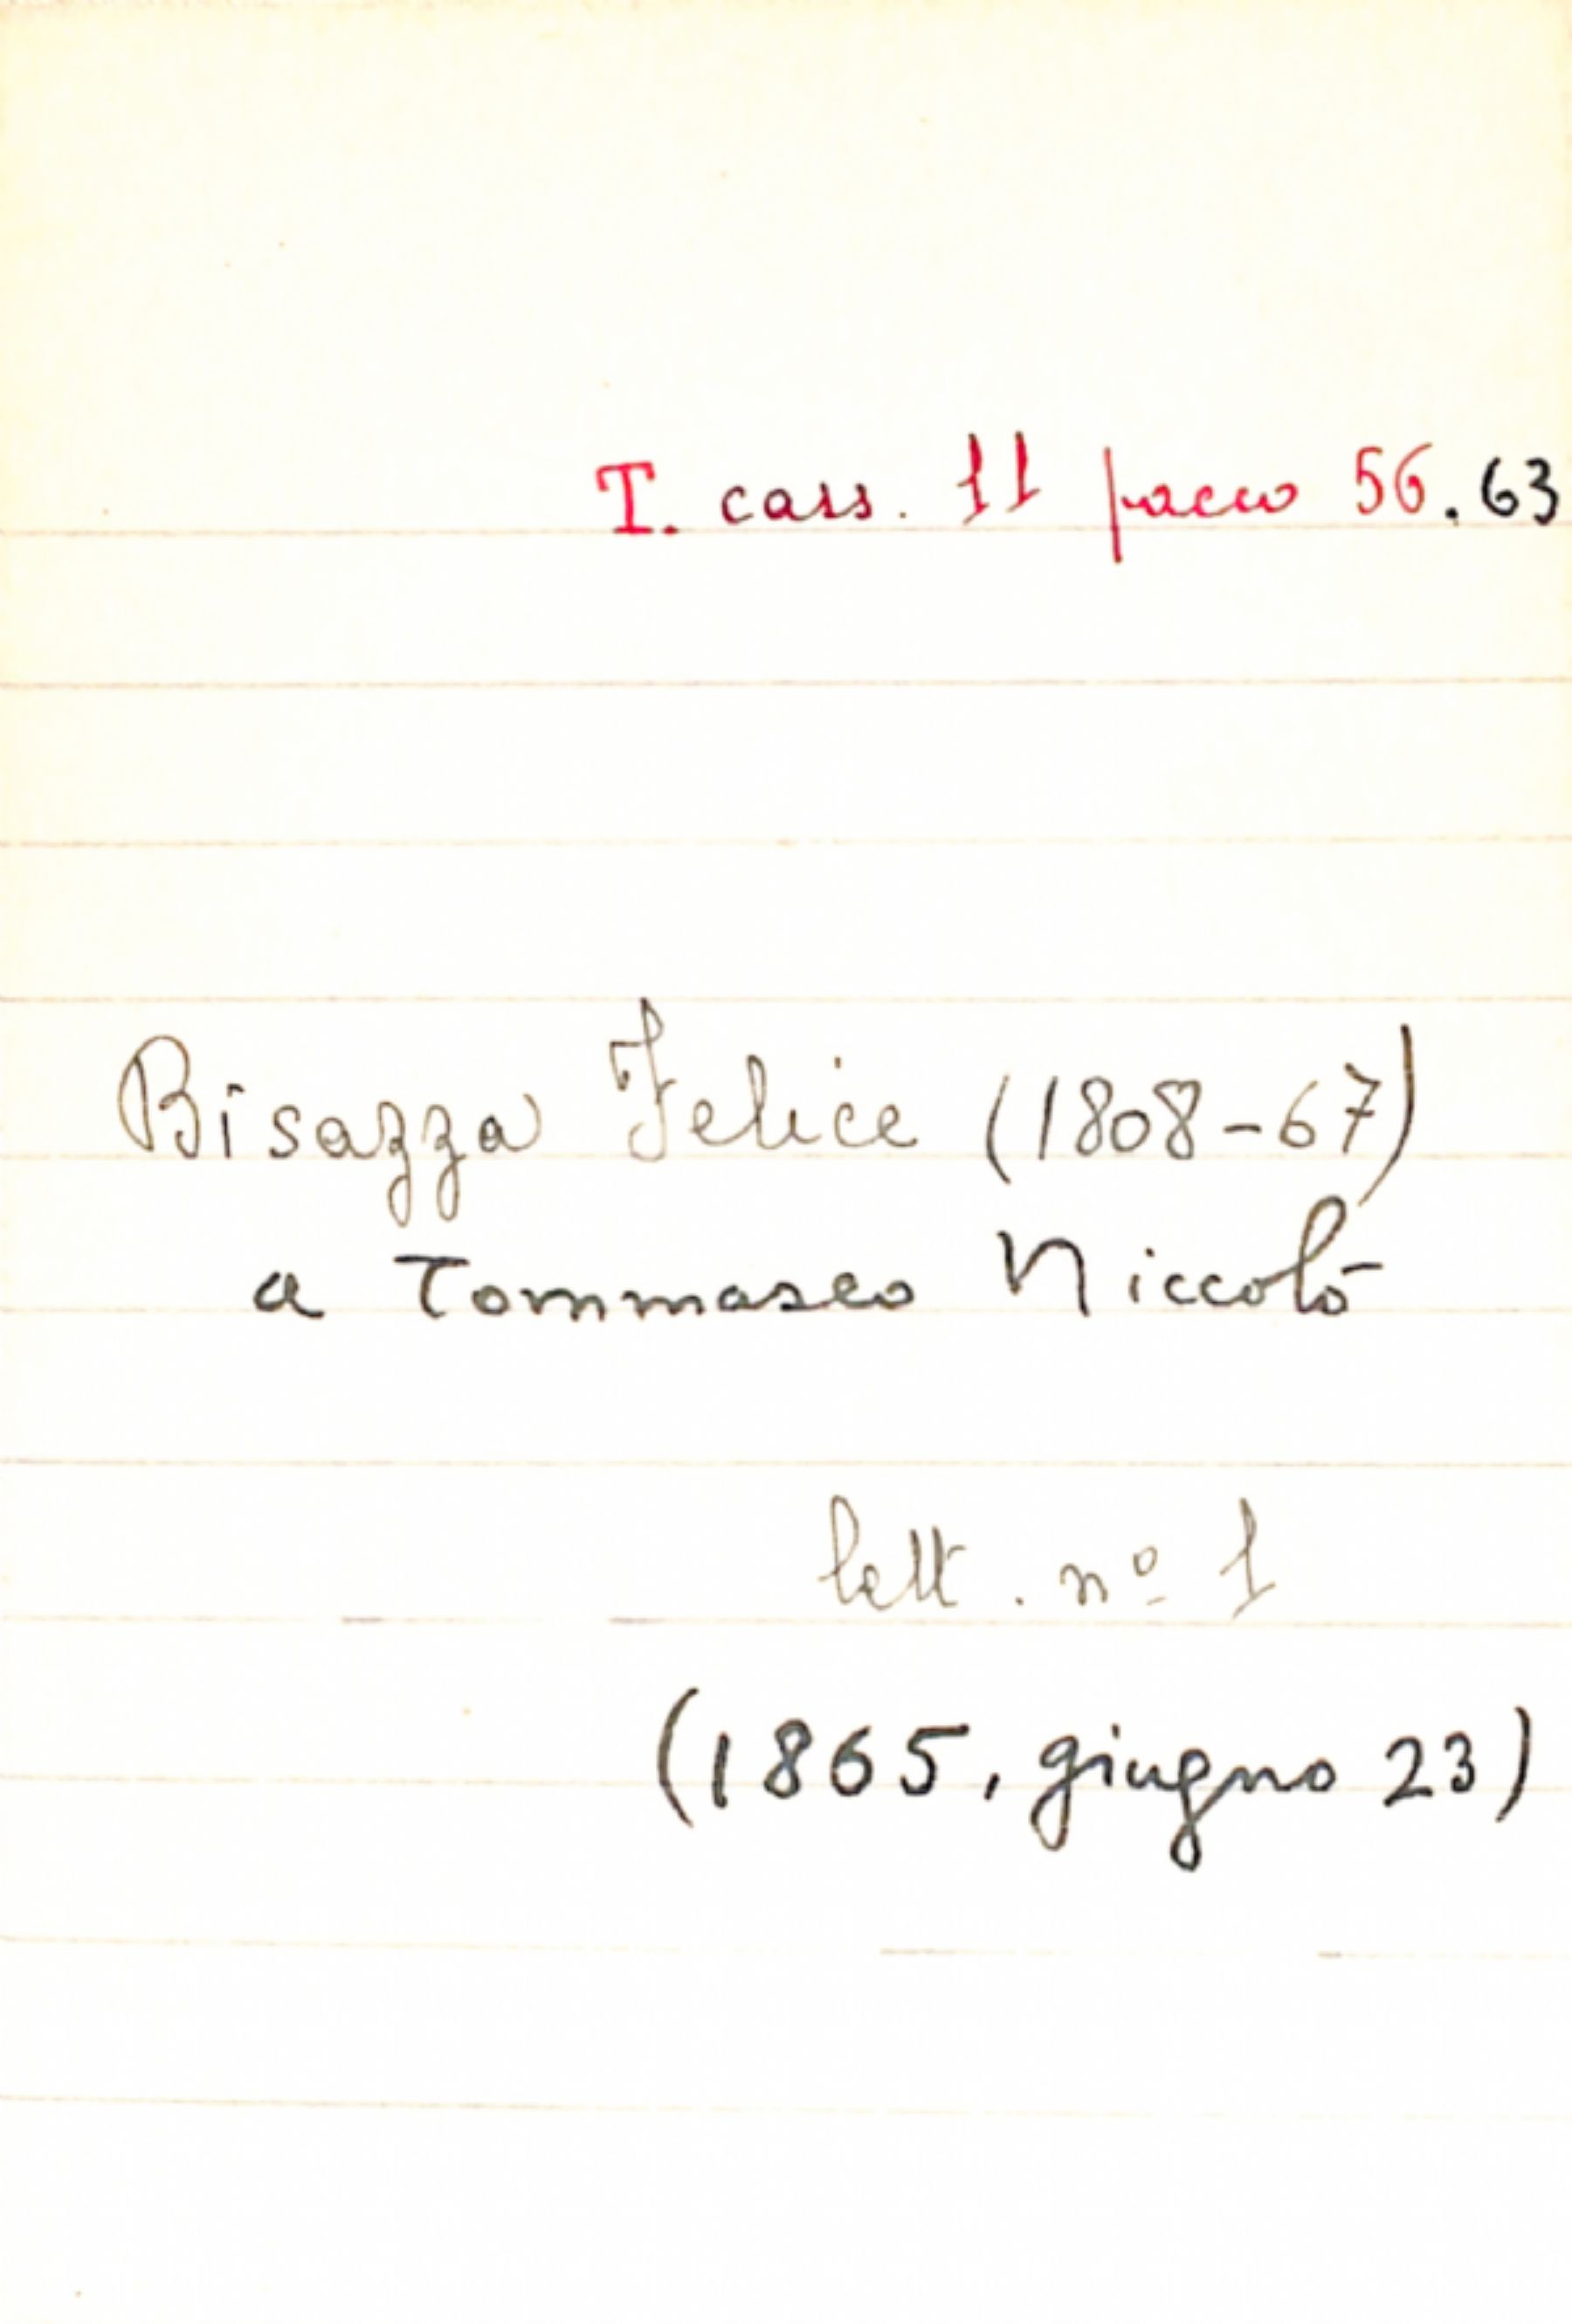 T. cass. 11 pacco 56.63
Bisazza Felice (1808-67)
a Tommaseo Niccolò
lett. nº 1
(1865, giugno 23)